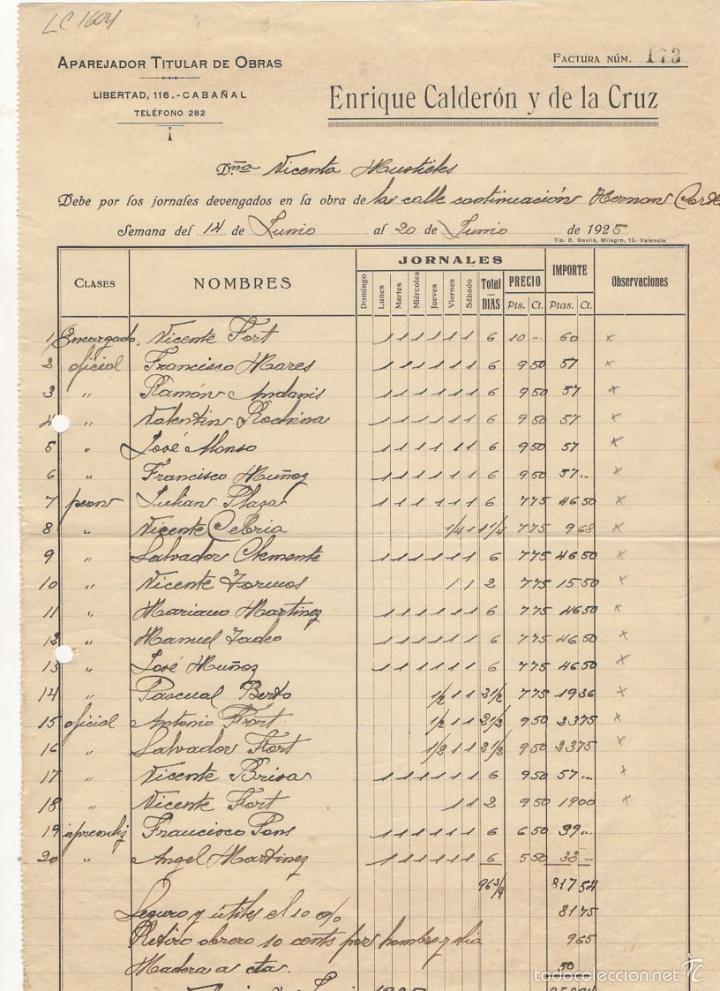 LC 1604
APAREJADOR TITULAR DE OBRAS
LIBERTAD, 116.-CABAÑAL
TELÉFONO 282
FACTURA NÚM. 173
Enrique Calderón y de la Cruz
Dña Vicenta
Debe por los jornales devengados en la obra de las calle continuación Hernan Cortes
Semana del 14 de Junio al 20 de Junio de 1925
Tip. B. Gevilá, Milagro, 15.-Valencia
CLASES NOMBRES JORNALES Total DIAS PRECIO IMPORTE Observaciones
Domingo Lunes Martes Miércoles Jueves Viernes Sábado Pts. Ct. Ptas. Ct.
1 Encargado Vicente Fort 1 1 1 1 1 1 6 10 .. 60 x
2 oficial Francisco Mares 1 1 1 1 1 1 6 9 50 57 x
3 " Ramón Andanis 1 1 1 1 1 1 6 9 50 57 x
4 " Valentin Rochina 1 1 1 1 1 1 6 9 50 57 x
5 " José Alonso 1 1 1 1 1 1 6 9 50 57 x
6 " Francisco Muñoz 1 1 1 1 1 1 6 9 50 57 .. x
7 peon Julian Plaza 1 1 1 1 1 1 6 7 75 46 50 x
8 " Vicente Cebria 1/4 1 1 1/4 7 75 9 68 x
9 " Salvador Clemente 1 1 1 1 1 1 6 7 75 46 50 x
10 " Vicente Tormos 1 1 2 7 75 15 50 x
11 " Mariano Martinez 1 1 1 1 1 1 6 7 75 46 50 x
12 " Manuel Tadeo 1 1 1 1 1 1 6 7 75 46 50 x
13 " José Muñoz 1 1 1 1 1 1 6 7 75 46 50 x
14 " Pascual Berto 1/2 1 1 2 1/2 7 75 19 36 x
15 oficial Antonio Fort 1/2 1 1 2 1/2 9 50 23 75 x
16 " Salvador Fort 1/2 1 1 2 1/2 9 50 23 75 x
17 " Vicente Brisa 1 1 1 1 1 1 6 9 50 57 .. x
18 " Vicente Fort 1 1 2 9 50 19 00 x
19 aprendiz Francisco Pons 1 1 1 1 1 1 6 6 50 39 ..
20 " Angel Martinez 1 1 1 1 1 1 6 5 50 33 ..
96 3/4 817 54
Seguro y útiles el 10 % 81 75
Retiro obrero 10 cents por hombre y dia 9 65
Madera a cta. 50
1925
todocoleccion.net